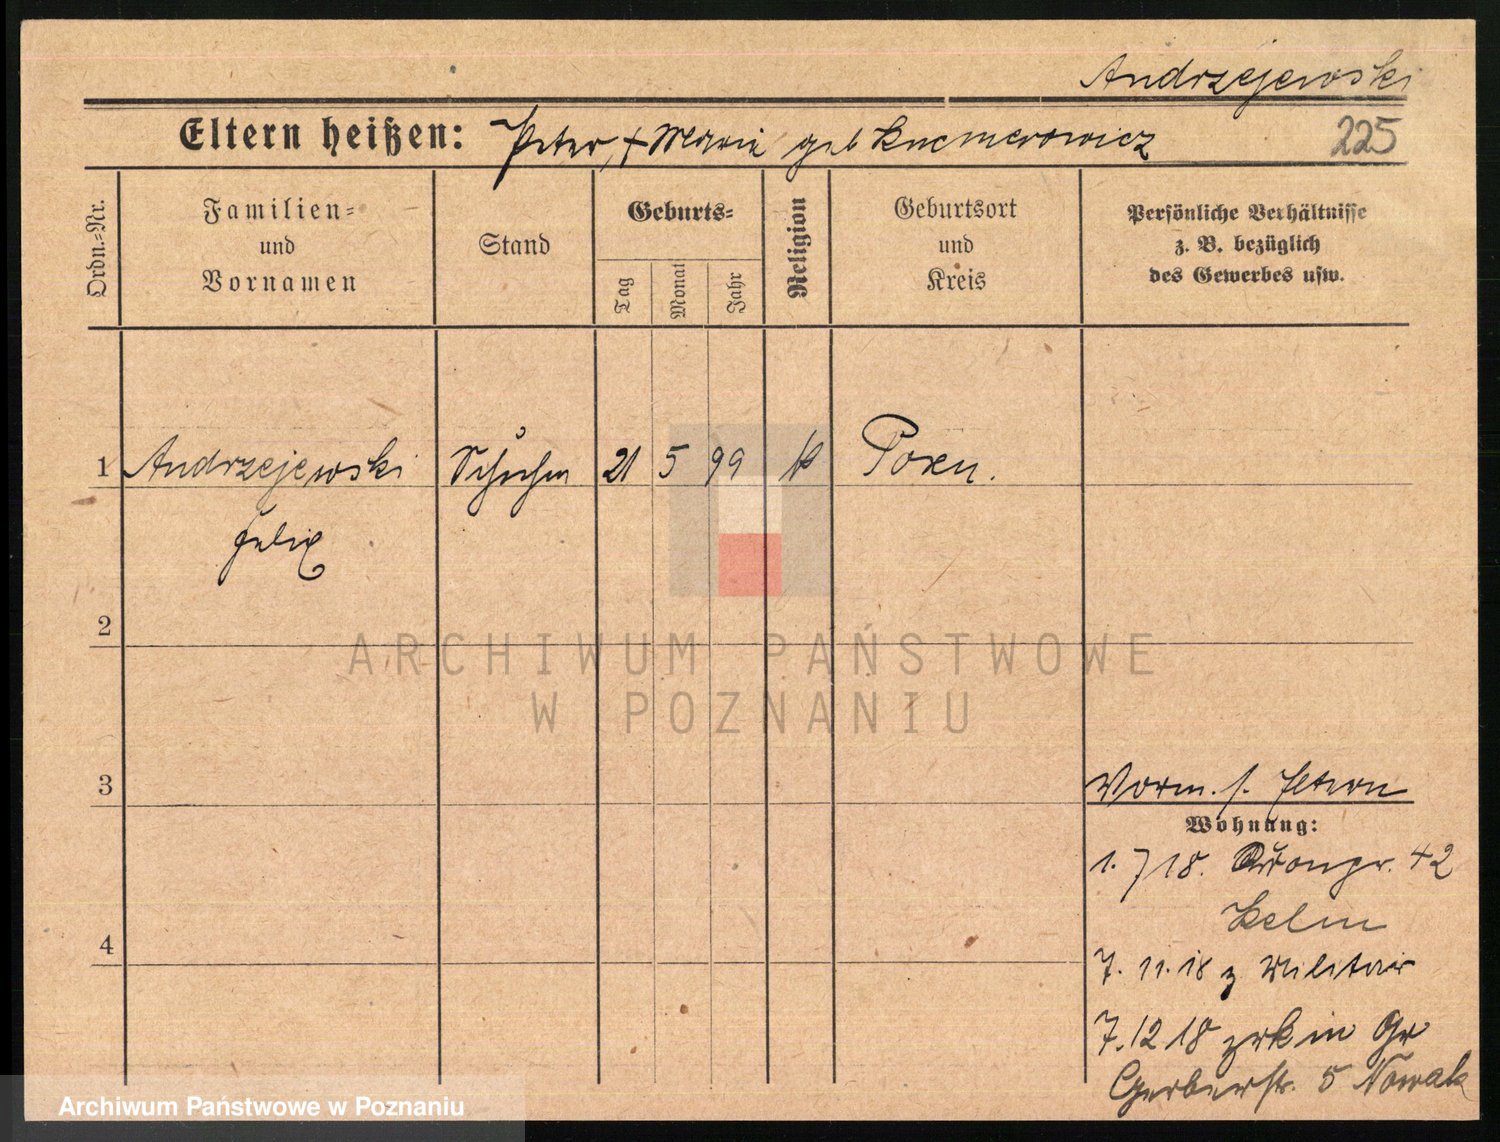 Andrzejewski
Eltern heißen: Peter, + Maria geb Kucmerowicz
225
Ordn.=Nr.
Familien=
und
Vornamen
Stand
Geburts=
Tag
Monat
Jahr
Religion
Geburtsort
und
Kreis
Persönliche Verhältnisse
z. B. bezüglich
des Gewerbes usw.
1 Andrzejewski 21 5 99 K Posen.
Felix
2
ARCHIWUM PAŃSTWOWE
W POZNANIU
3
Vorm. s. Eltern
Wohnung:
1. 7 18. 42
Kelm
4
7. 11. 18 z Militair
7. 12 18 zrk in Gr
Gerberstr. 5 Nowak
Archiwum Państwowe w Poznaniu